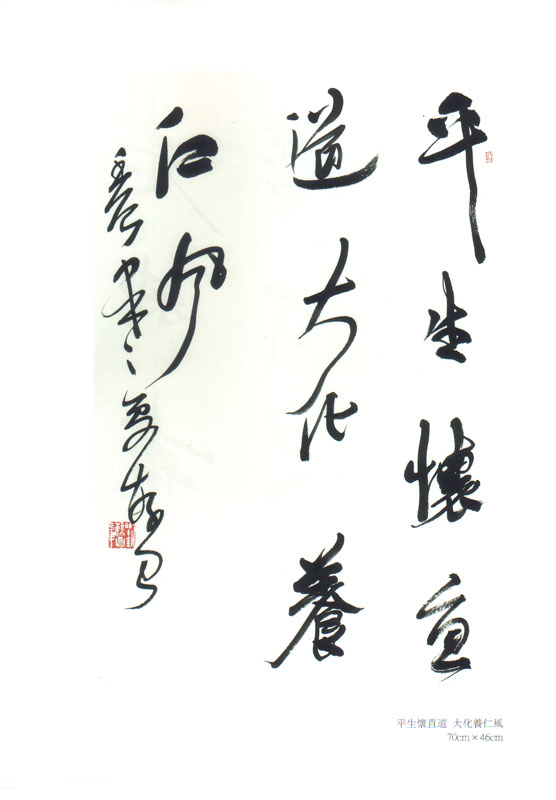 平生懷直
道大化養
仁風
平生懷直道 大化養仁風
70cm×46cm